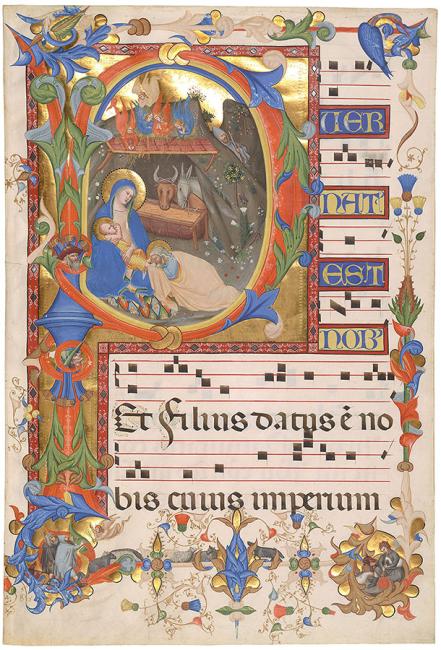 UER
NAT'
EST
NOB'
Et Filius datus ē no
bis cuius imperium